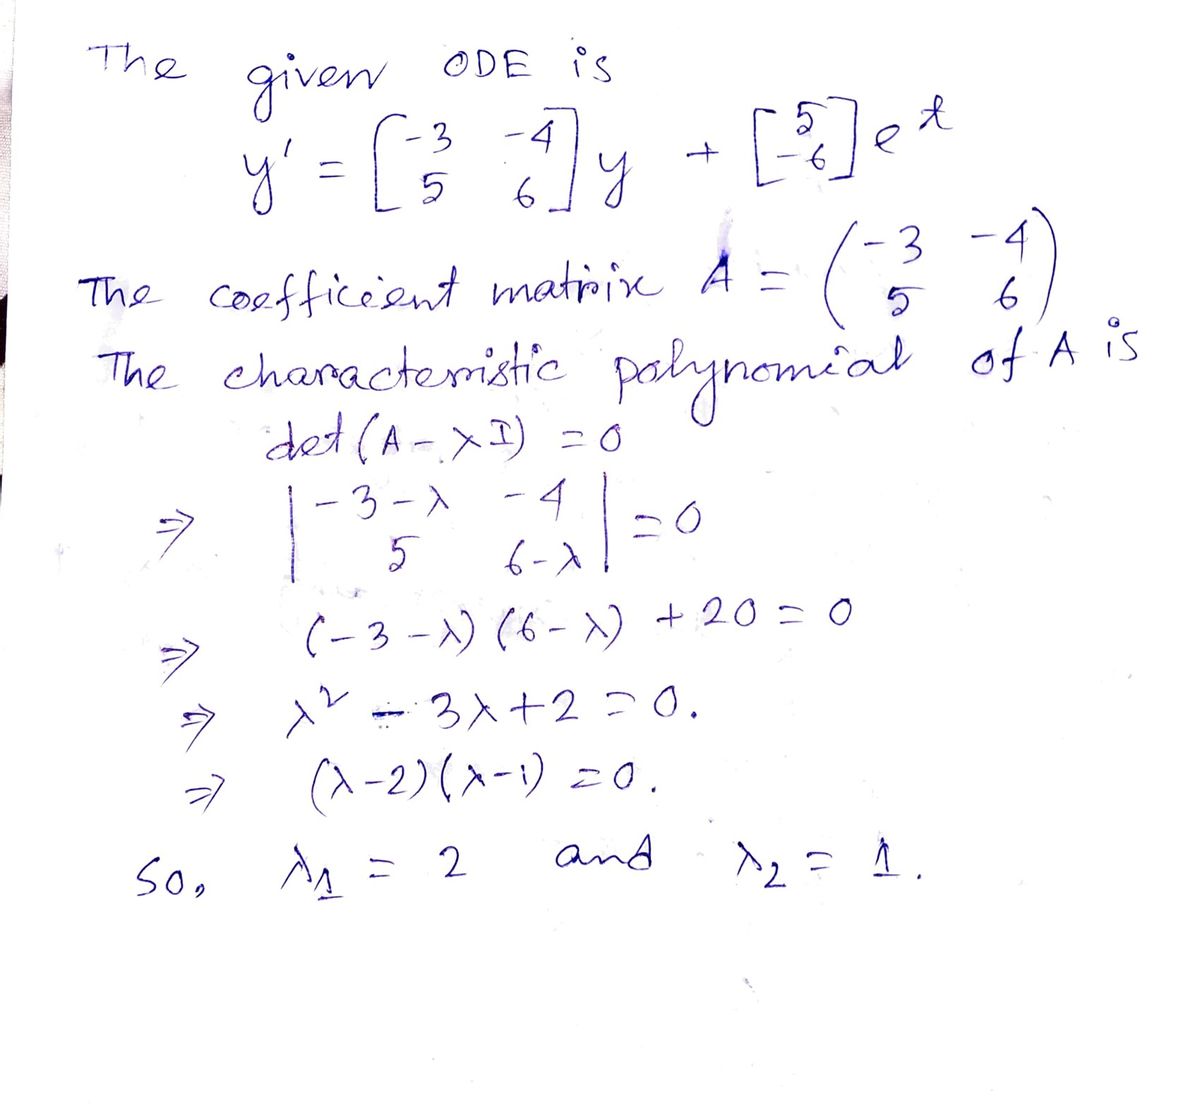 The given ODE is
y' = [-3 -4; 5 6] y + [5; -6] e^t
The coefficient matrix A = (-3 -4; 5 6)
The characteristic polynomial of A is
det (A - λI) = 0
⇒ |-3-λ -4; 5 6-λ| = 0
⇒ (-3-λ) (6-λ) + 20 = 0
⇒ λ² - 3λ + 2 = 0.
⇒ (λ-2)(λ-1) = 0.
So, λ₁ = 2 and λ₂ = 1.